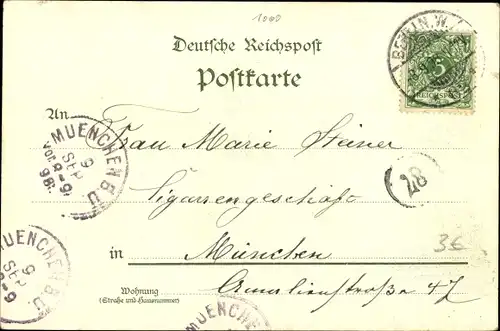 1000
Deutsche Reichspost
Postkarte
BERLIN.W.
5
An
MUENCHEN B.U.
9
SEP
Vor. 8-9
98.
Frau Marie Steiner
Cigarrengeschäft
28
in München
3€
MUENCHEN B.U.
9
SEP
8-9
Wohnung
(Straße und Hausnummer)
Amalienstraße 47
MUENCHEN